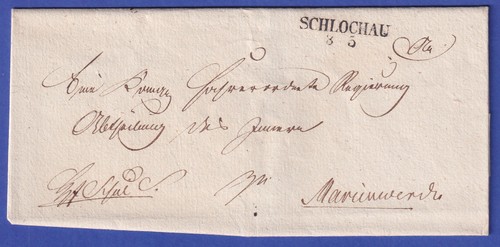 SCHLOCHAU
8 5
Eine Königl. Hochverordnete Regierung
Abtheilung des Innern
zu
Marienwerder